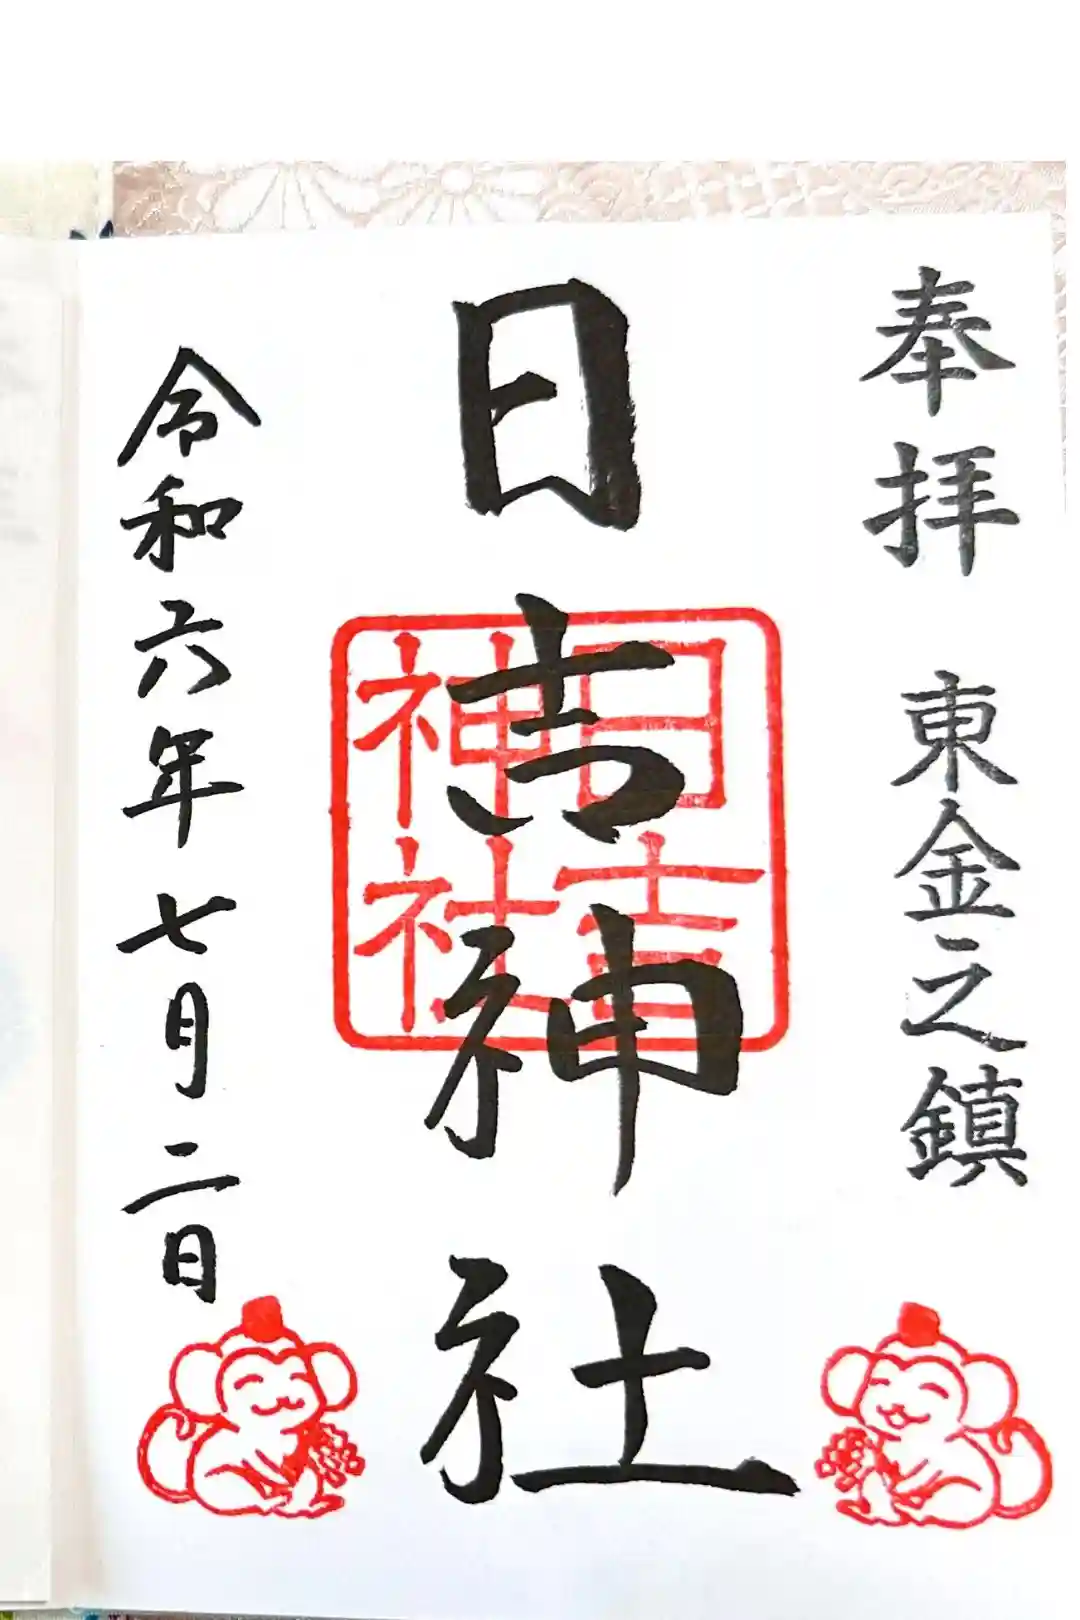 奉拝 東金之鎮
日吉神社
日吉
神社
令和六年七月二日